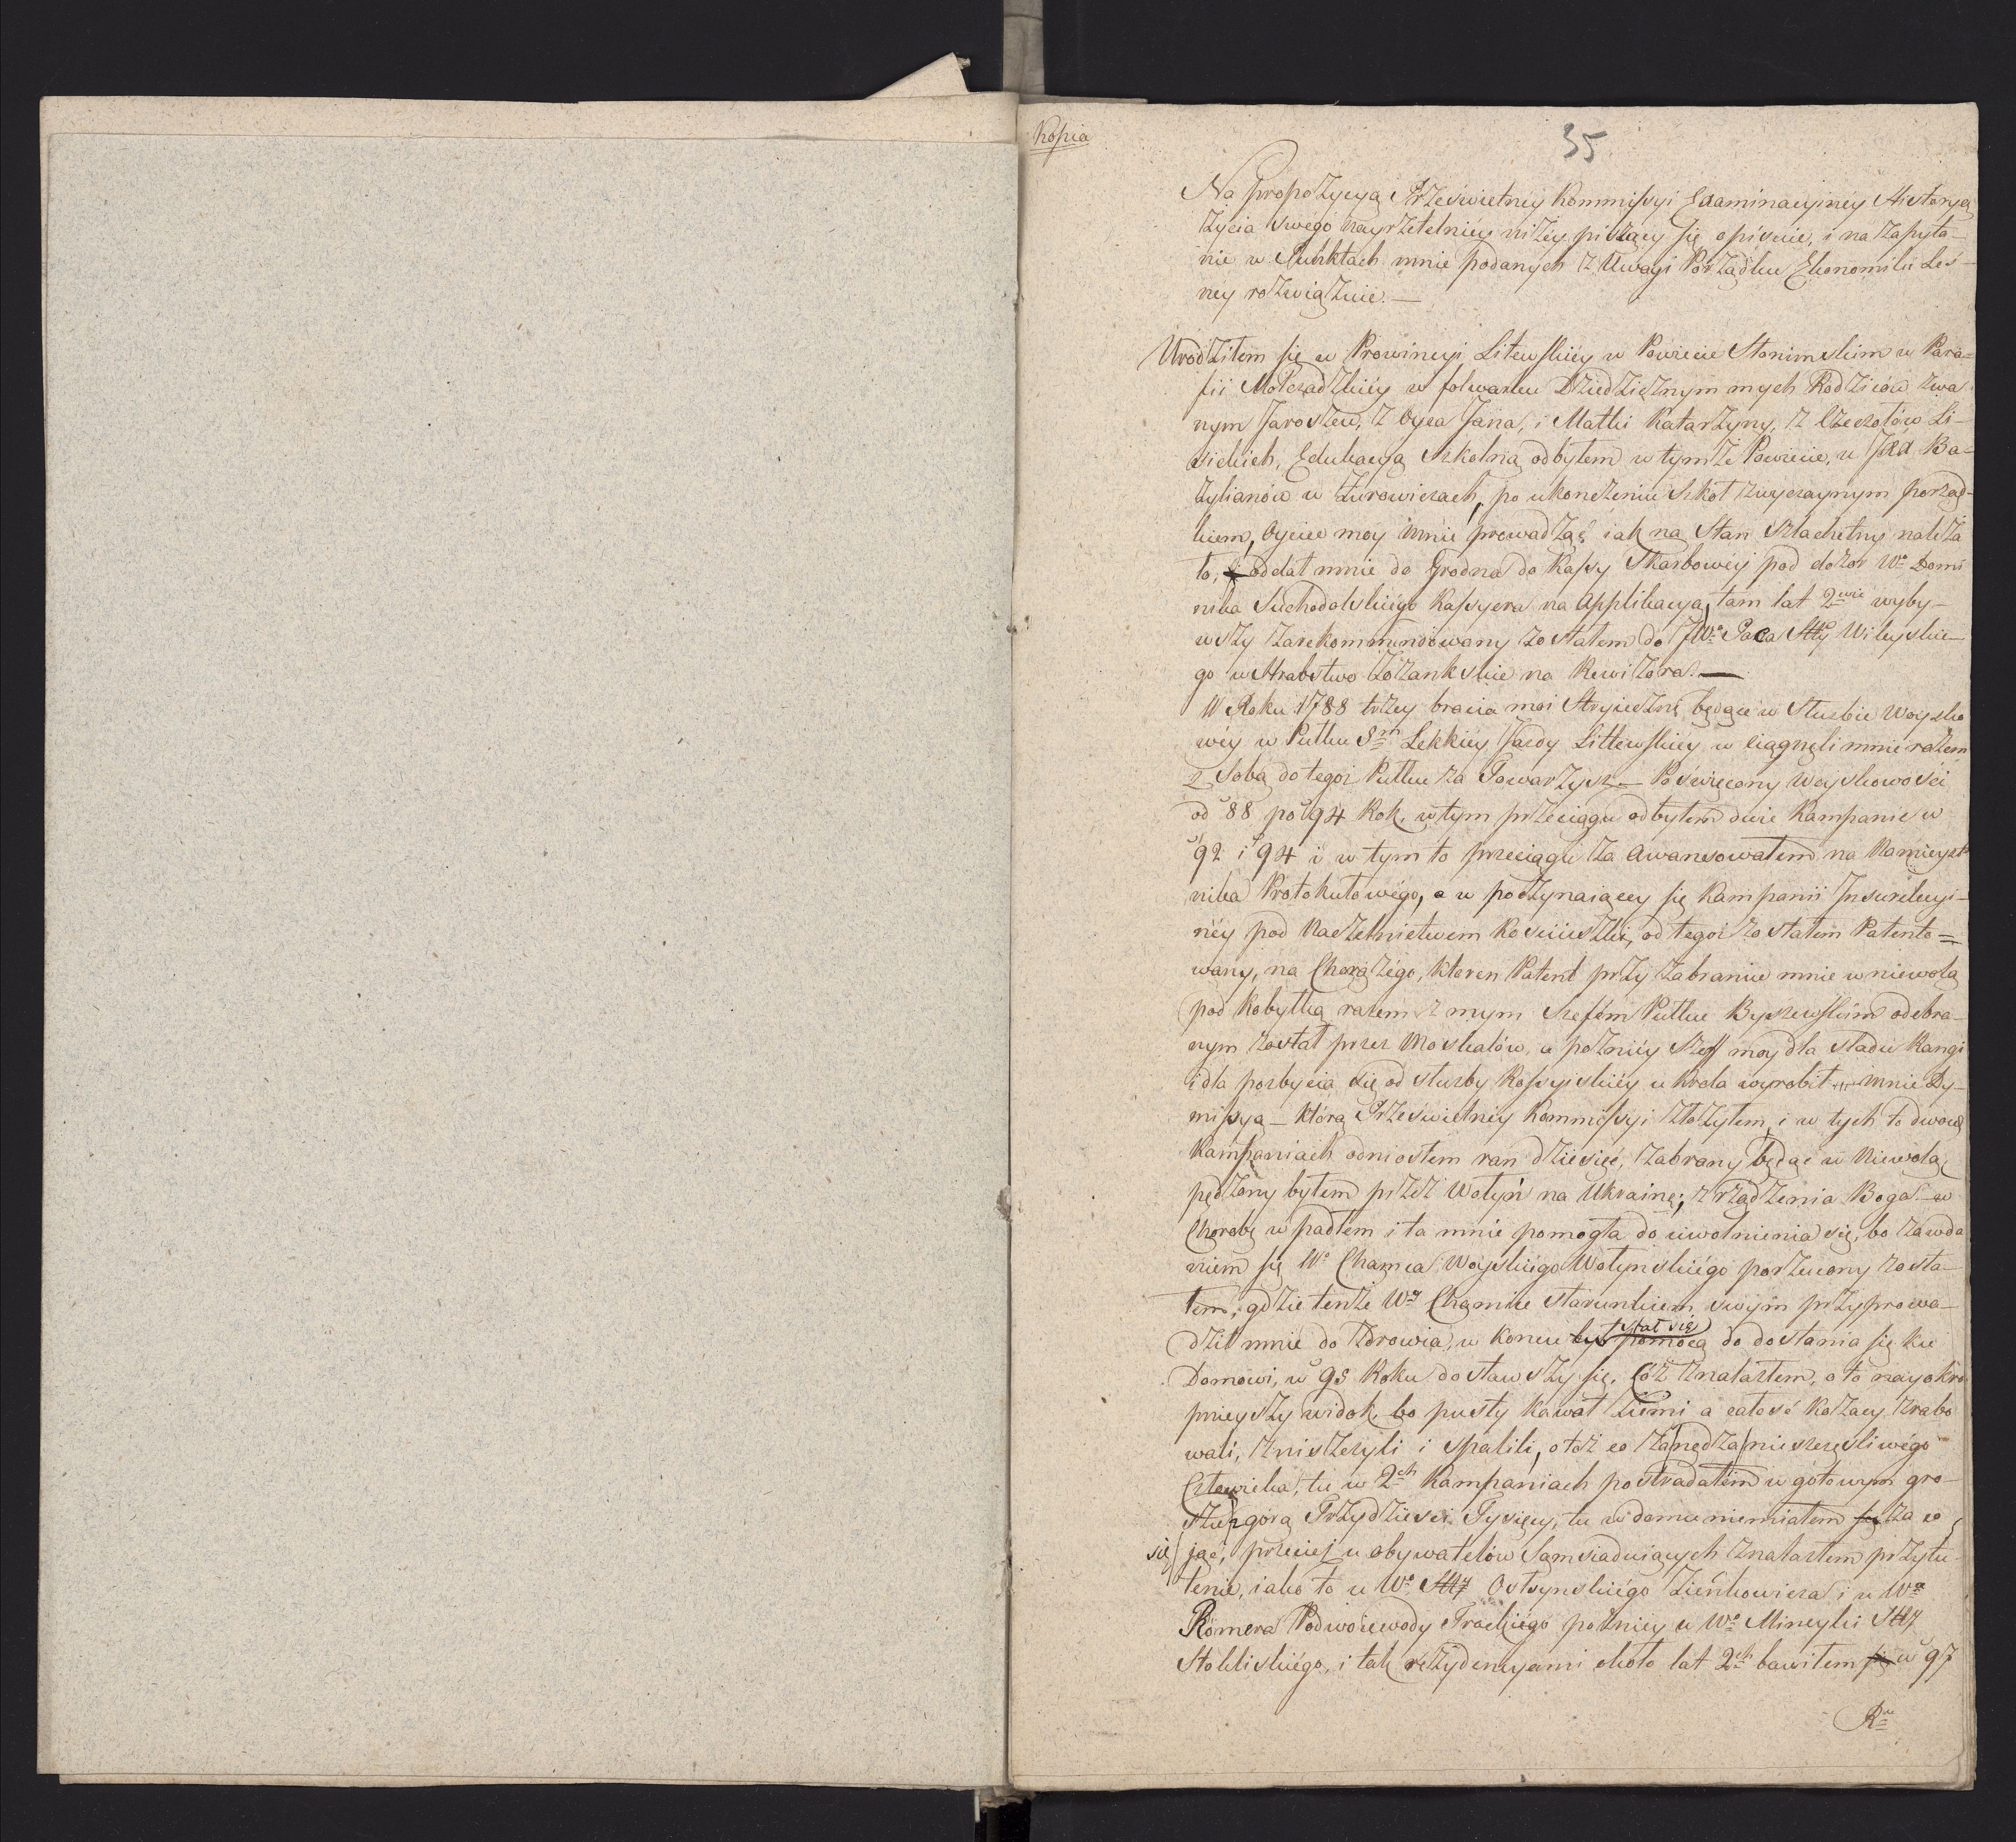 Kopia
35
Na propozycyą Prześwietney Kommissyi Examinacyiney Historyą
życia swego nayrzetelniéy niżéy piszący się opisuie, i na zapyta-
nie w Punktach mnie podanych z Uwagi Porządku Ekonomiki Leś-
néy rozwiązuie.—
Urodziłem się w Prowincyi Litewskiéy w Powiecie Słonimskim w Para-
fii Mołczadzkiéy w folwarku Dziedzicznym mych Rodziców zwa
nym Jaroszew, z Oyca Jana, i Matki Katarzyny, z Czeczotów Li-
sickich, Edukacyą Szkolną odbyłem w tymże Powiecie, u JXX Ba-
zylianów w Żurowiczach, po ukończeniu Szkół zwyczaynym porząd-
kiem, Oyciec moy mnie prowadząc iak na Stan Szlachetny należa
ło, i oddał mnie do Grodna do Kassy Skarbowéy pod dozor Wo Domi
nika Suchodolskiégo Kassyera na Applikacyą, tam lat 2wie wyby-
wszy zarekommendowany zostałem do JWo Paca Stty Wileyskie-
go w Hrabstwo Łozankskie na Rewizora.—
W Roku 1788 trzey bracia moi Stryieczni będące w Służbie Woysko
wéy w Pułku 8m Lekkiéy Jazdy Littewskiey w ciągnęli mnie razem
z Sobą do tegoż Pułku za Towarzysz.— Poświęcony Woyskowości
od 88 po 94 Rok. w tym przeciągu odbyłem dwie Kampanie w
92 i 94 i w tym to przeciągu za awansowałem na Namieyst
nika Protokułowégo, a w poczynaiącey się Kampanii Insurekcyi-
néy pod Naczelnictwem Kosciuszki, od tegoż zostałem Patento=
wany, na Chorążégo, ktoren Patent przy zabraniu mnie w niewolą
pod Kobyłką razem z mym Szefém Pułku Byszewskim odebra-
nym został przez Moskalów, a poźniéy Szef moy dla sladu Rangi
i dla pozbycia się od służby Rossyiskiéy u Krola wyrobił mnie Dy-
missyą— którą Prześwietnéy Kommissyi złożyłem, i w tych to dwoch
Kampaniach odniosłem ran dziesięć, zabrany będąc w Niewolą,
pędzony byłem przéz Wołyń na Ukrainę; z rządzenia Boga.— w
Chorobę w padłem i ta mnie pomogła do uwolnienia się, bo zawda
niem się Wo Chamca Woyskiégo Wołynskiégo porzucony zosta-
łem, gdzie tenże Wy Chamiec starunkiem swym przyprowa-
dził mnie do zdrowia, w koncu był stał się pomocą do dostania się ku
Domowi, w 95 Roku dostawszy się. Cóż znalazłem, oto nayokro
pnieyszy widok, bo pusty kawał Ziemi a całość Kozacy zrabo
wali, zniszczyli i spalili, otóż co za nędza nieszczęśliwégo
Człowieka, tu w 2ch Kampaniach postradałem w gotowym gro-
szu z górą Trzydzieści Tysięcy, tu w domu niemiałem się za co
się jąć, przeciej u obywatelów Sąmsiaduiących znalazłem przytu-
lenie, iako to u Wo Stty Ostrynskiégo Zieńkowicza i u Wo
Römera Podwoiewody Trockiégo poźniéy u Wo Mineyki Stty
Stokliskiégo, i tak rezydencyami około lat 2ch bawiłem się w 97
Ru